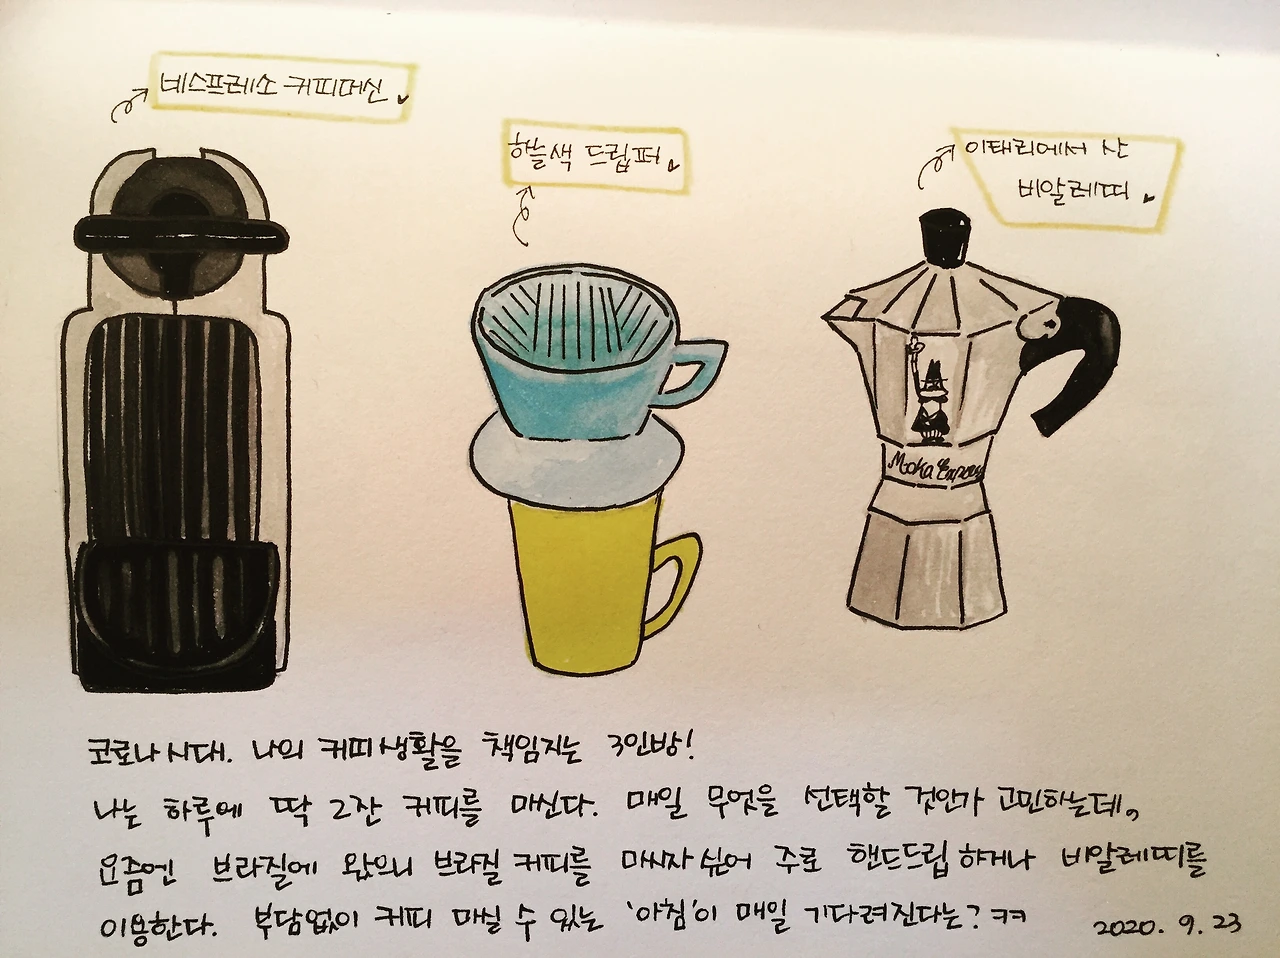 네스프레소 커피머신
하늘색 드립퍼
이태리에서 산
비알레띠
Moka Express
코로나시대. 나의 커피생활을 책임지는 3인방!
나는 하루에 딱 2잔 커피를 마신다. 매일 무엇을 선택할 것인가 고민하는데,
요즘엔 브라질에 왔으니 브라질 커피를 마시자 싶어 주로 핸드드립 하거나 비알레띠를
이용한다. 부담없이 커피 마실 수 있는 '아침'이 매일 기다려진다는? ㅋㅋ
2020. 9. 23